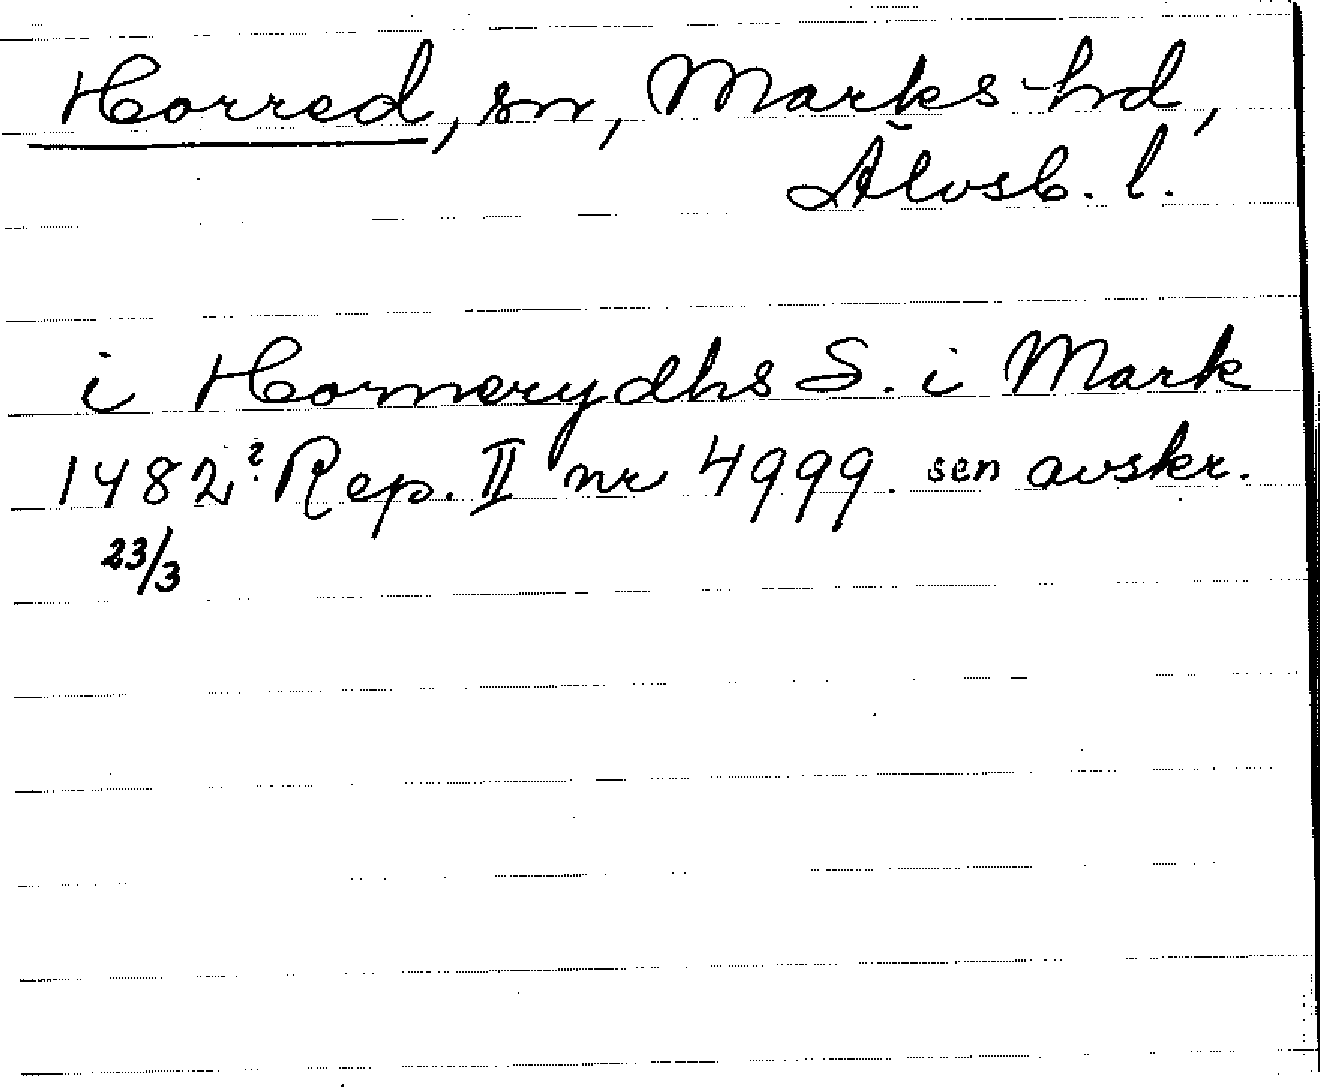 Horred, sn, Marks hd,
Älvsb. l.
i Hornerydhs S. i Mark
1482? Rep. II nr 4999. sen avskr.
23/3